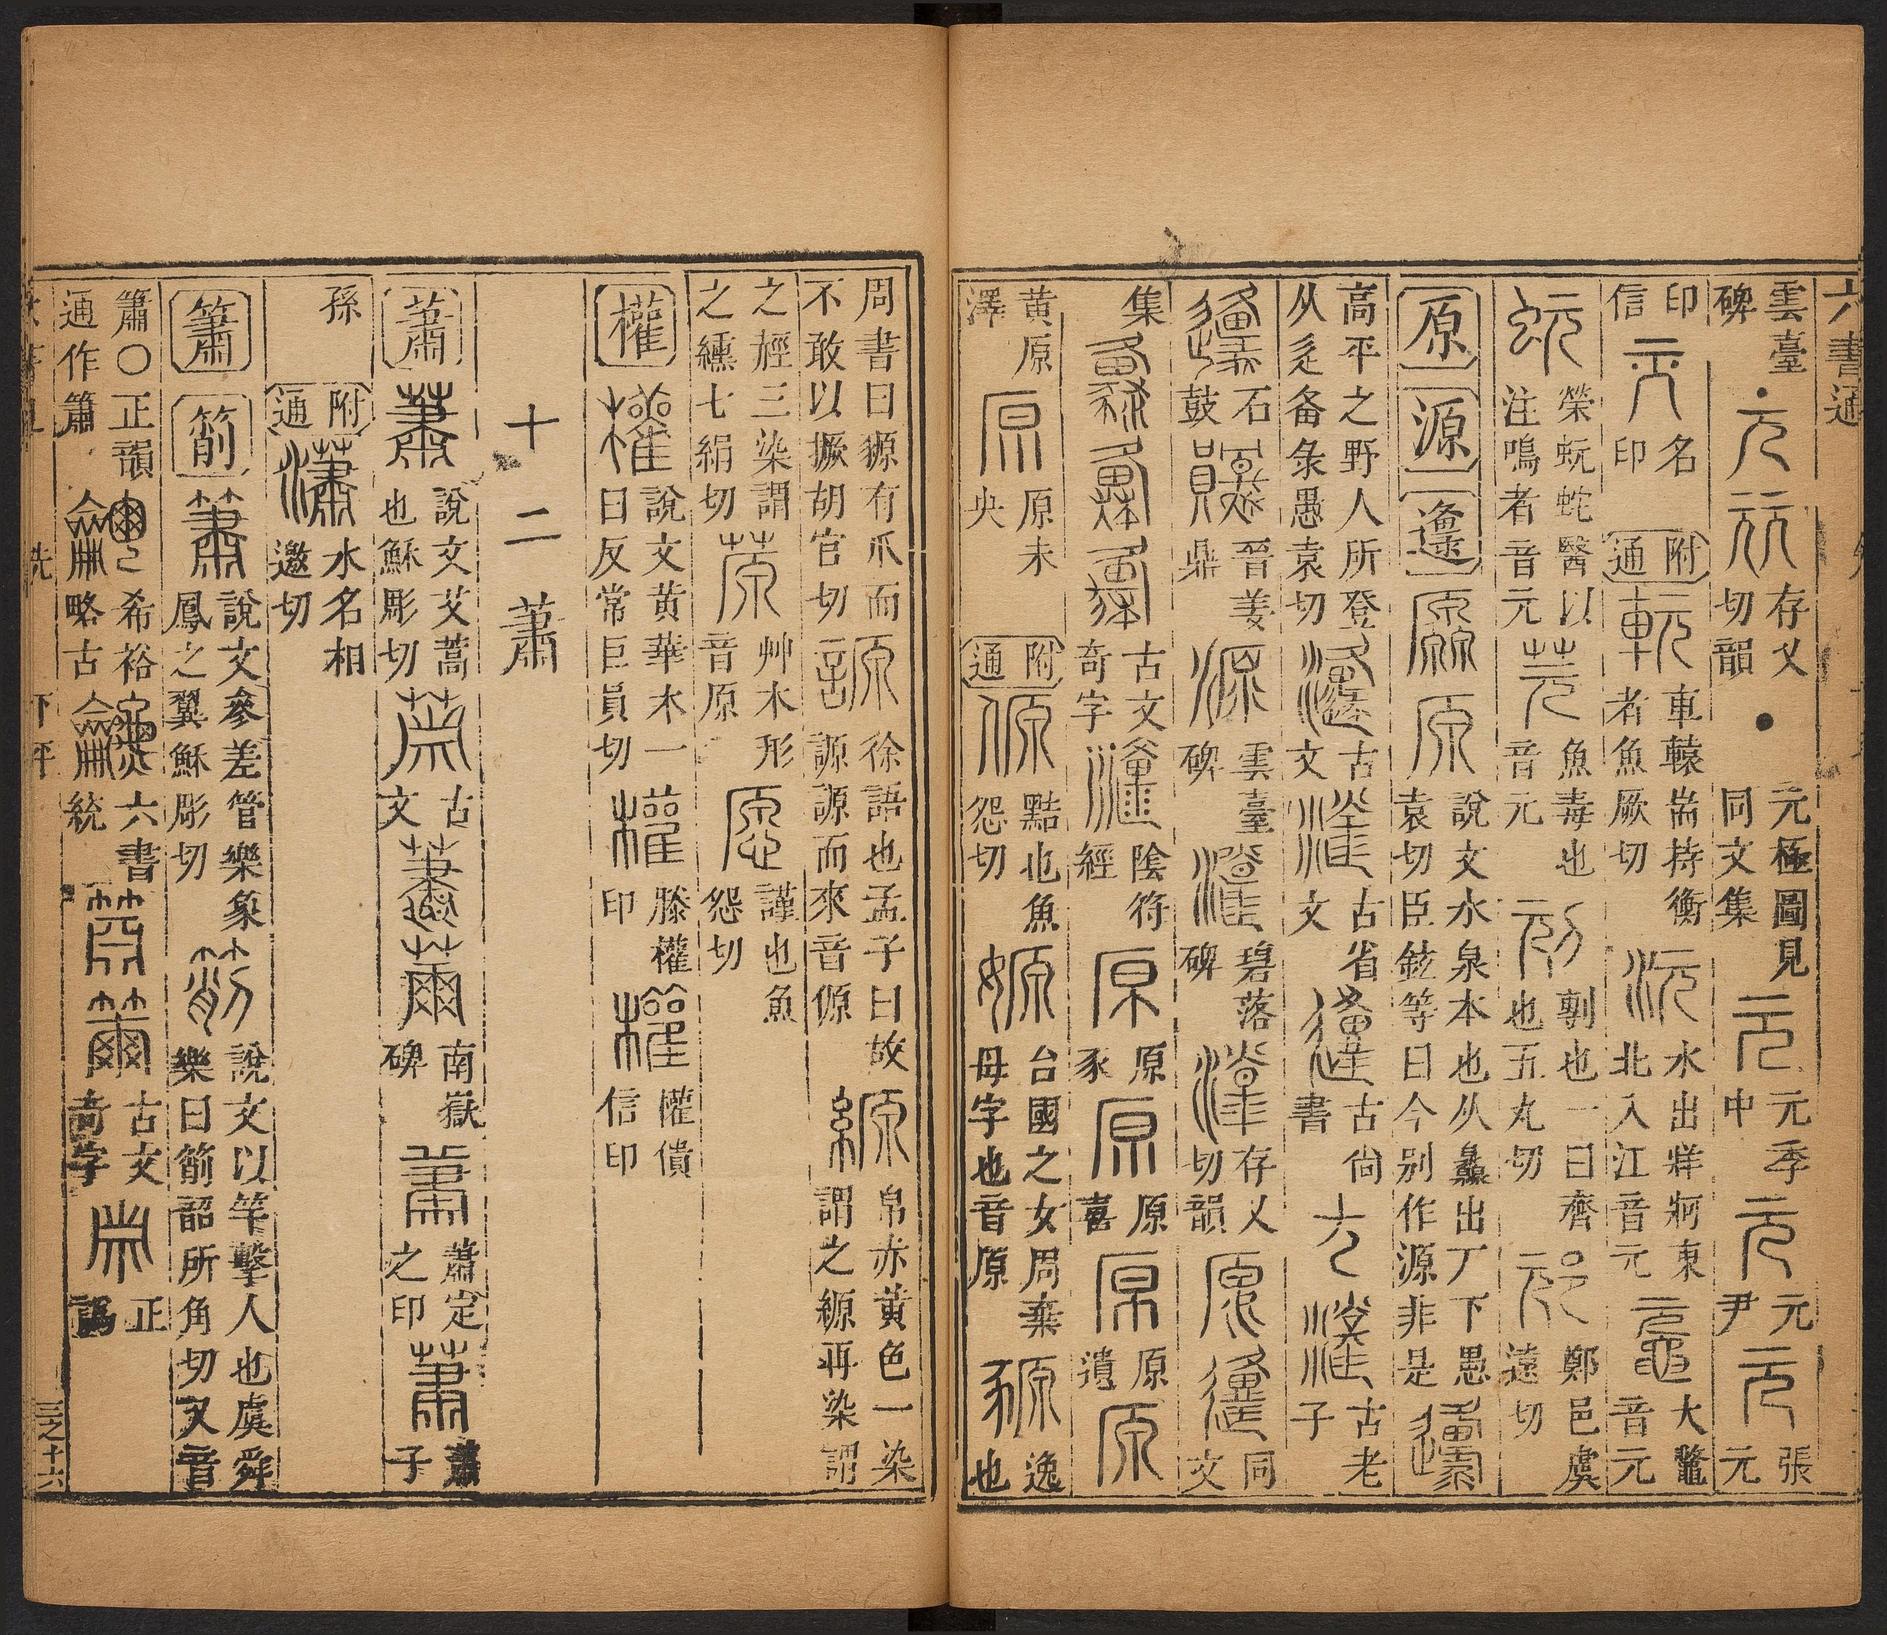 六書通
雲臺碑 元 存乂切韻 元極圖見同文集 元季中 元尹 張元
印信 名印 附通 軏 車轅耑持衡者魚厥切 沅 水出牂牁東北入江音元 黿 大鼈音元
蚖 榮蚖蛇醫以注鳴者音元 芫 魚毒也音元 刓 剸也一曰齊也五丸切 邧 鄭邑虞遠切
原 源 邍 厵 原 說文水泉本也从灥出厂下愚袁切臣鉉等曰今別作源非是 邍
高平之野人所登从辵备彔愚袁切 古文 古文 古文省 古尚書 古老子
石鼓 晉姜鼎 源 雲臺碑 碧落碑 存乂切韻 同文
集 古文奇字 陰符經 原豕 原喜 原遺 原
黃原澤 原 原未央 附通 傆 黠也魚怨切 嫄 台國之女周棄母字也音原 豲 逸也
周書曰豲有爪而不敢以撅胡官切 謜 徐語也孟子曰故謜謜而來音傆 縓 帛赤黃色一染謂之縓再染謂
之䞓三染謂之纁七絹切 䒳 艸木形音原 愿 謹也魚怨切
權 權 說文黃華木一曰反常巨員切 權 滕權印 權 權僨信印
十二蕭
蕭 蕭 說文艾蒿也穌彫切 古文 南嶽碑 蕭定之印 蕭子
孫 附通 瀟 水名相邀切
簫 箾 簫 說文參差管樂象鳳之翼穌彫切 箾 說文以竿擊人也虞舜樂曰箾韶所角切又音
簫〇正韻通作簫 希裕略古 六書統 古文奇字 正譌
先 下平 三之十六